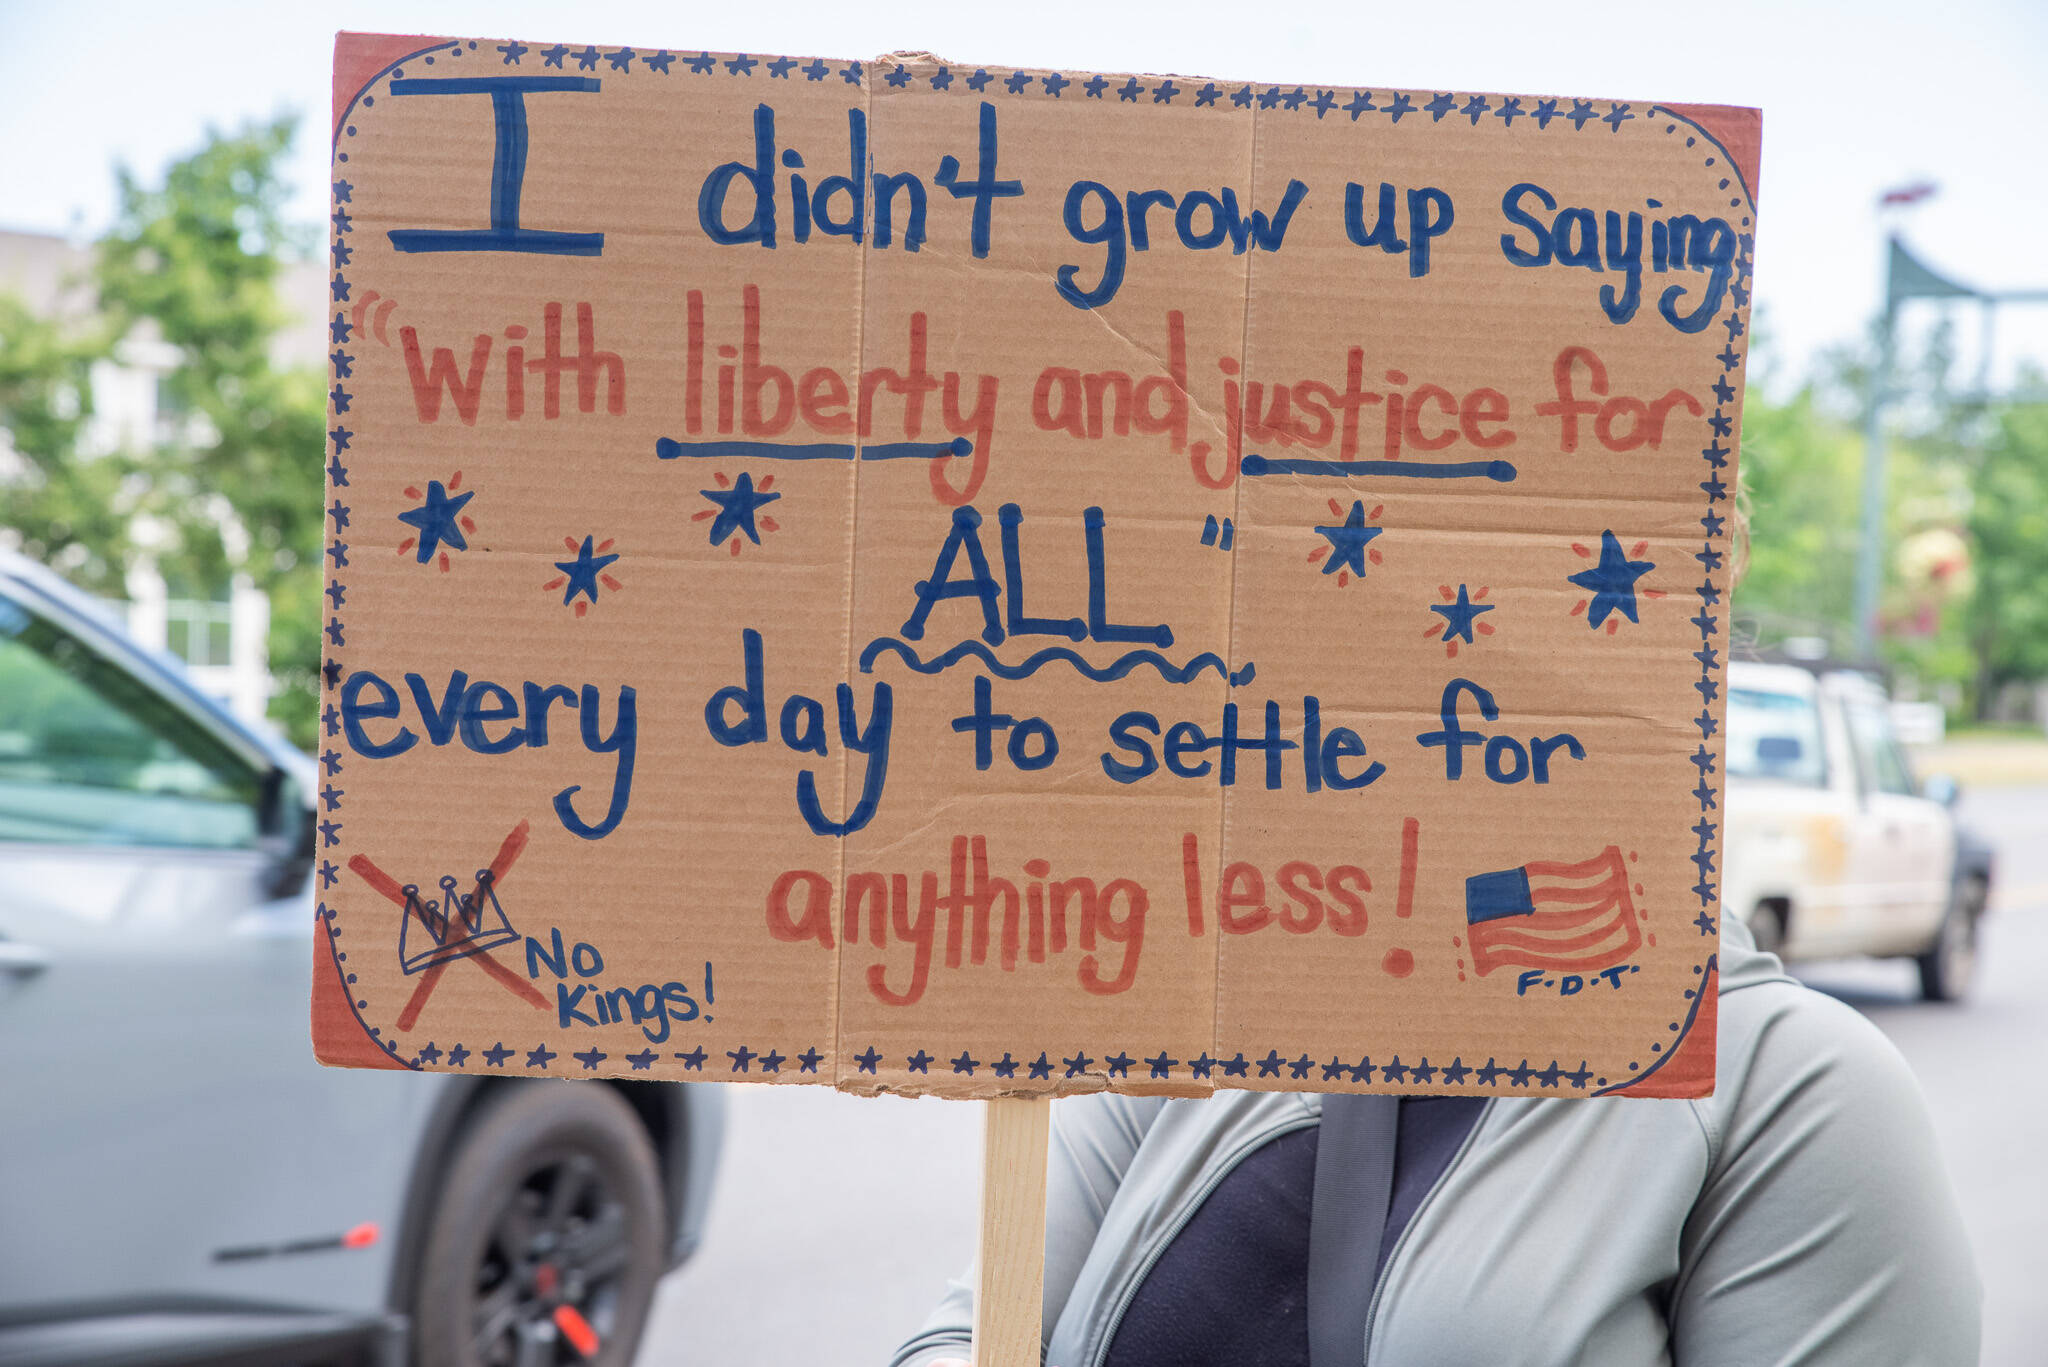 I didn't grow up saying
"with liberty and justice for
ALL"
every day to settle for
anything less!
No
Kings!
F.D.T.